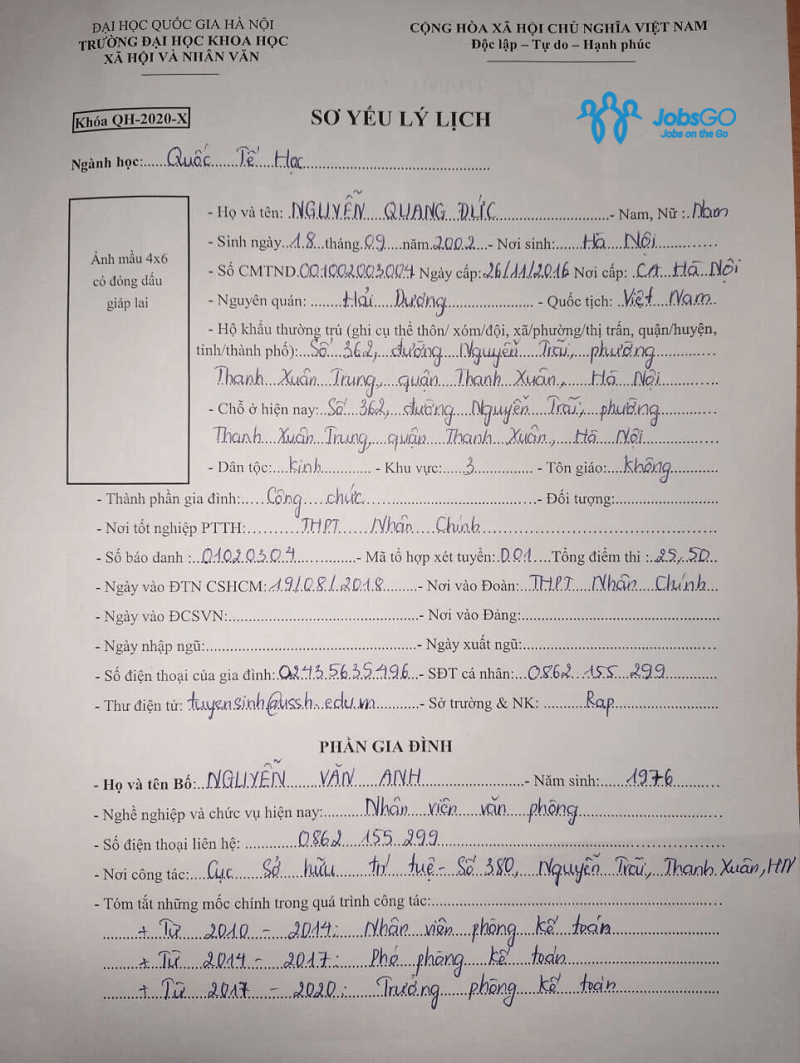 ĐẠI HỌC QUỐC GIA HÀ NỘI
TRƯỜNG ĐẠI HỌC KHOA HỌC
XÃ HỘI VÀ NHÂN VĂN
CỘNG HÒA XÃ HỘI CHỦ NGHĨA VIỆT NAM
Độc lập – Tự do – Hạnh phúc
Khóa QH-2020-X
SƠ YẾU LÝ LỊCH
JobsGO
Jobs on the Go
Ngành học:.....Quốc Tế Học
Ảnh mầu 4x6
có đóng dấu
giáp lai
- Họ và tên: NGUYỄN QUANG ĐỨC - Nam, Nữ: Nam
- Sinh ngày 18 tháng 09 năm 2002 - Nơi sinh: Hà Nội
- Số CMTND 001002003004 Ngày cấp: 26/11/2016 Nơi cấp: CA Hà Nội
- Nguyên quán: Hải Dương - Quốc tịch: Việt Nam
- Hộ khẩu thường trú (ghi cụ thể thôn/ xóm/đội, xã/phường/thị trấn, quận/huyện,
tỉnh/thành phố): Số 362, đường Nguyễn Trãi, phường
Thanh Xuân Trung, quận Thanh Xuân, Hà Nội
- Chỗ ở hiện nay: Số 362, đường Nguyễn Trãi, phường
Thanh Xuân Trung, quận Thanh Xuân, Hà Nội
- Dân tộc: Kinh - Khu vực: 3 - Tôn giáo: Không
- Thành phần gia đình: Công chức - Đối tượng:
- Nơi tốt nghiệp PTTH: THPT Nhân Chính
- Số báo danh: 01020304 - Mã tổ hợp xét tuyển: D01 Tổng điểm thi: 25,50
- Ngày vào ĐTN CSHCM: 19/08/2018 - Nơi vào Đoàn: THPT Nhân Chính
- Ngày vào ĐCSVN: - Nơi vào Đảng:
- Ngày nhập ngũ: - Ngày xuất ngũ:
- Số điện thoại của gia đình: 02435635496 - SĐT cá nhân: 0862 155 299
- Thư điện tử: tuyensinh@ussh.edu.vn - Sở trường & NK: Rap
PHẦN GIA ĐÌNH
- Họ và tên Bố: NGUYỄN VĂN ANH - Năm sinh: 1976
- Nghề nghiệp và chức vụ hiện nay: Nhân viên văn phòng
- Số điện thoại liên hệ: 0862 155 299
- Nơi công tác: Cục Sở hữu trí tuệ - Số 380, Nguyễn Trãi, Thanh Xuân, HN
- Tóm tắt những mốc chính trong quá trình công tác:
+ Từ 2010 - 2014: Nhân viên phòng kế toán
+ Từ 2014 - 2017: Phó phòng kế toán
+ Từ 2017 - 2020: Trưởng phòng kế toán